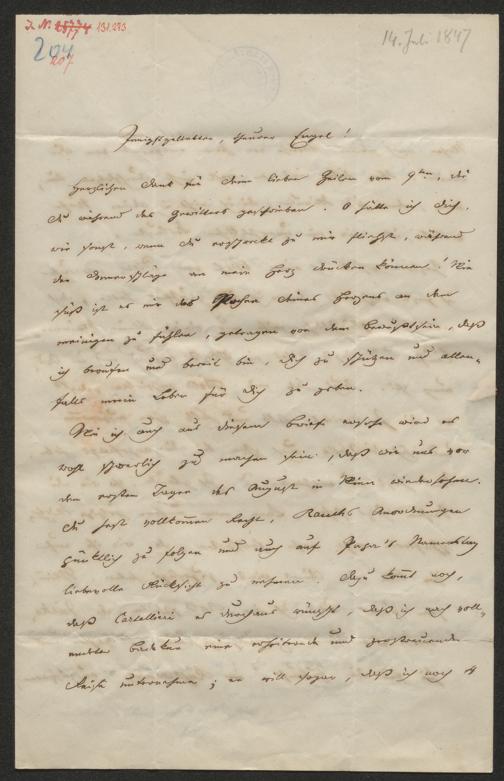 J. N. 25774 131.273
204
207
14. Juli 1847
Innigstgeliebter, theurer Engel!
Herzlichen Dank für deine lieben Zeilen vom 9ten, die
du während des Gewitters geschrieben. O hätte ich dich,
wie sonst, wenn du erschreckt zu mir fliehst, während
der Donnerschläge an mein Herz drücken können! Wie
süß ist es mir das Pochen deines Herzens an dem
meinigen zu fühlen, getragen von dem Bewußtsein, daß
ich berufen und bereit bin, dich zu schützen und allen-
falls mein Leben für dich zu geben.
Wie ich auch aus diesem Briefe ersehe wird es
wohl schwerlich zu machen sein, daß wir uns vor
den ersten Tagen des August in Wien wiedersehen.
Du hast vollkommen Recht, Rauchs Anordnungen
pünktlich zu folgen und auch auf Papa's Namenstag
liebevolle Rücksicht zu nehmen. Dazu kommt noch,
daß Castellieri es durchaus wünscht, daß ich nach voll-
endeter Badekur eine erheiternde und zerstreuende
Reise unternehme; er will sogar, daß ich noch 4